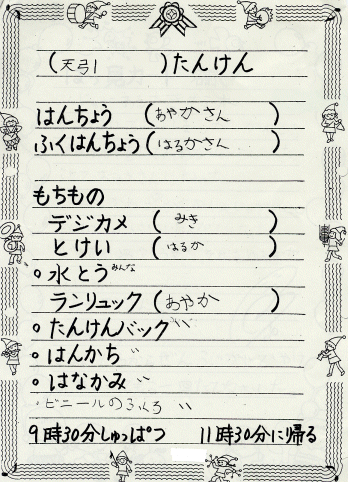 (天弓1 )たんけん
はんちょう (あやかさん )
ふくはんちょう(はるかさん )
もちもの
デジカメ (みき )
とけい (はるか )
○水とうみんな
ランリュック(あやか )
○たんけんバック〃
○はんかち〃
○はなかみ〃
○ビニールのふくろ〃
9時30分しゅっぱつ 11時30分に帰る